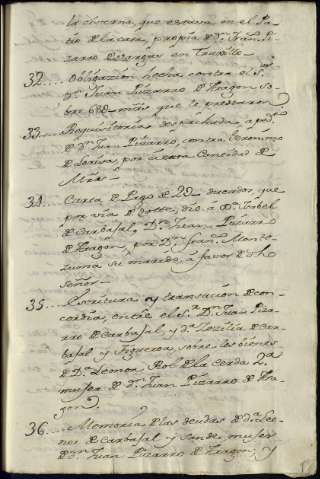 la cisterna, que estava en el Pa-
tio de la casa, propia de Dn. Fran.co Pi-
zarro de Vargas en Truxillo.
32.... Obligacion hecha contra el Sr.
Dn. Juan Pizarro de Aragon so-
bre mrs. que le prestaron
33.... Requisitoria despachada, a ped.to
de Dn. Juan Pizarro, contra Geronimo
de por cierta Cantidad de
Mrs.
34.... Carta de Pago de ducados, que
por via de dotte, dio a Da. Isabel
de Carbajal, Dn. Juan Pizarro
de Aragon, por Dn. Fran.co Monte-
zuma su marido, a favor de dho
Señor.
35.... Escritura, y transacion, de con-
cordia, entre el Sr. Dn. Juan Piza-
rro de Carbajal, y Da. Zezilia de Car-
bajal y Figueroa sobre los bienes
de Da. Leonor Rol de la Cerda 2a.
muger de Dn. Juan Pizarro de Ara-
gon.
36.... Memoria de las deudas de Da. Leo-
nor de Carbajal y Sande, muger
de Dn. Juan Pizarro de Aragon, y